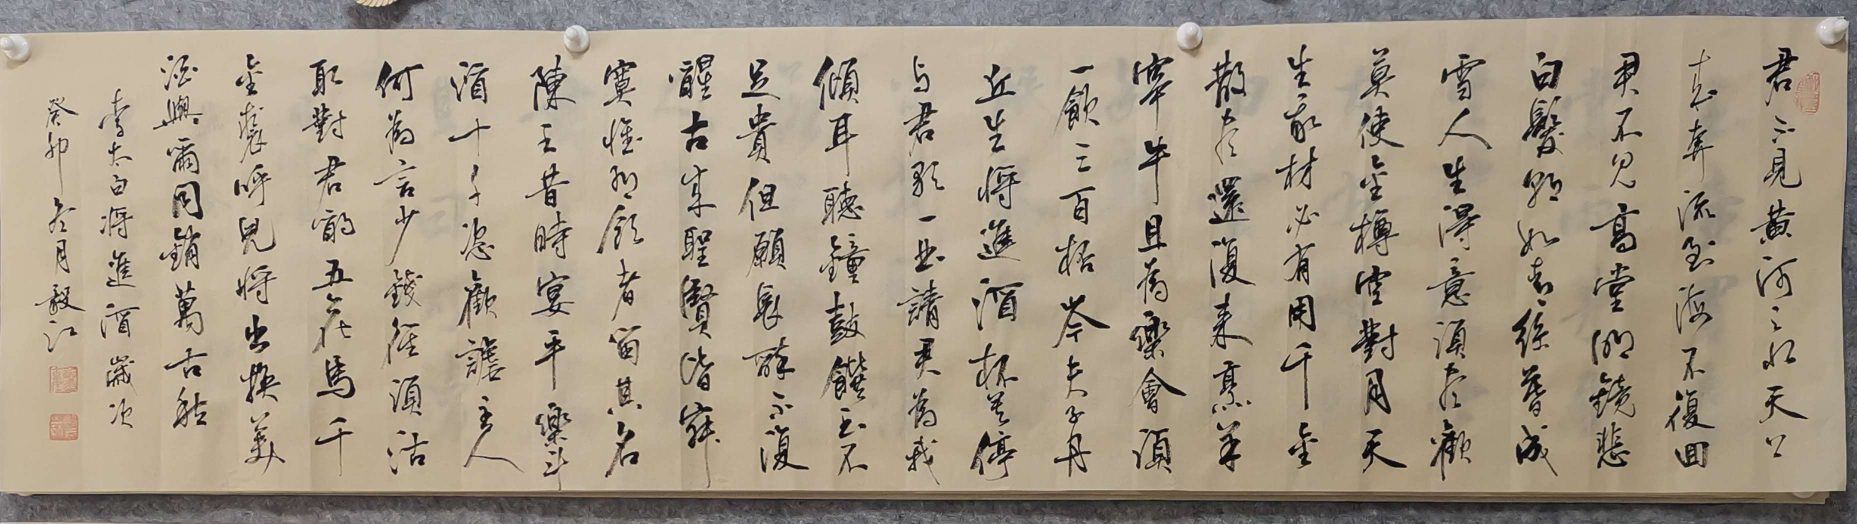 君不見黃河之水天上
來奔流到海不復回
君不見高堂明鏡悲
白髮朝如青絲暮成
雪人生得意須盡歡
莫使金樽空對月天
生我材必有用千金
散盡還復來烹羊
宰牛且為樂會須
一飲三百杯岑夫子丹
丘生將進酒杯莫停
與君歌一曲請君為我
傾耳聽鐘鼓饌玉不
足貴但願長醉不復
醒古來聖賢皆寂
寞惟有飲者留其名
陳王昔時宴平樂斗
酒十千恣歡謔主人
何為言少錢徑須沽
取對君酌五花馬千
金裘呼兒將出換美
酒與爾同銷萬古愁
李太白將進酒歲次
癸卯冬月毅江